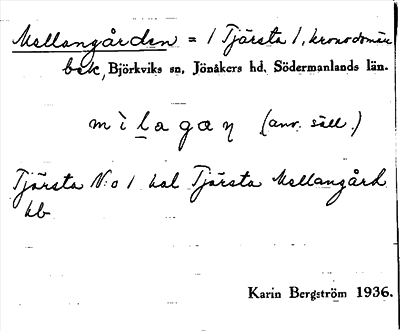 Mellangården = 1 Tjärsta 1, kronodomän
bsk, Björkviks sn, Jönåkers hd, Södermanlands län.
mìlagaŋ (anv. säll.)
Tjärsta No 1 kal Tjärsta Mellangård
kb
Karin Bergström 1936.